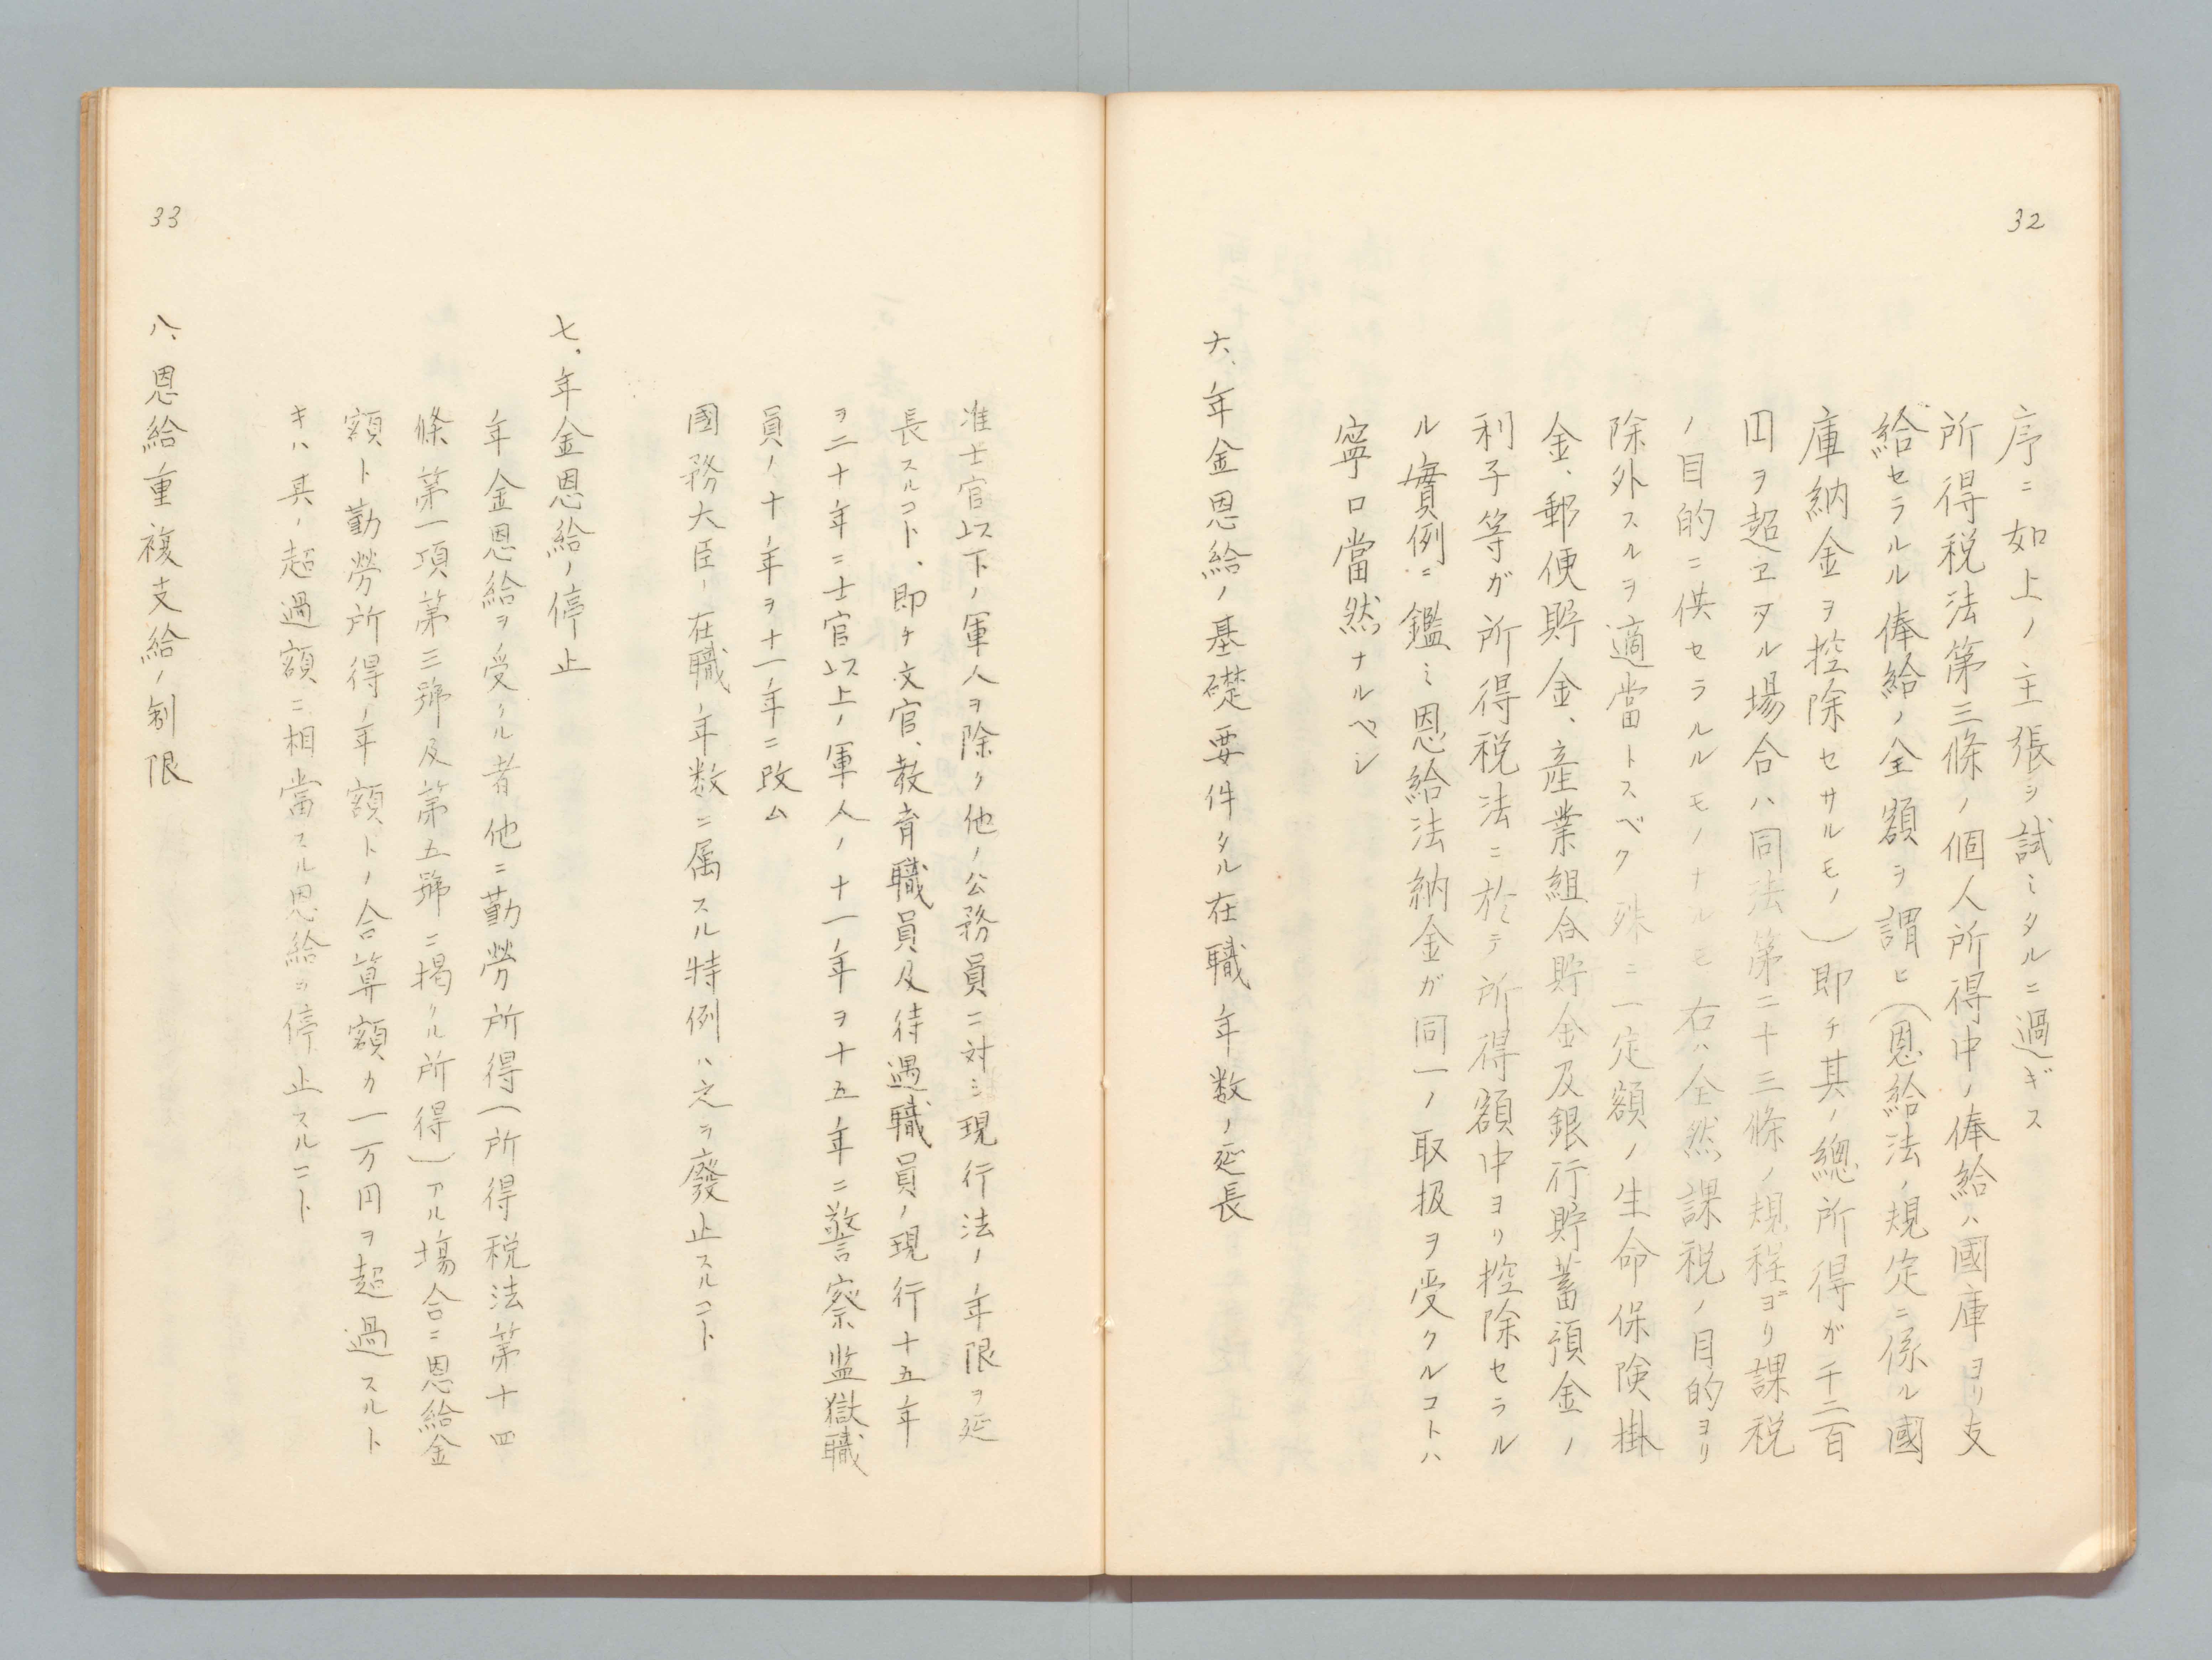 32
序ニ如上ノ主張ヲ試ミタルニ過ギス
所得税法第三條ノ個人所得中ノ俸給ハ國庫ヨリ支
給セラルル俸給ノ全額ヲ謂ヒ（恩給法ノ規定ニ係ル國
庫納金ヲ控除セサルモノ）即チ其ノ總所得ガ千二百
円ヲ超ヱタル場合ハ同法第二十三條ノ規程ヨリ課税
ノ目的ニ供セラルルモノナルモ右ハ全然課税ノ目的ヨリ
除外スルヲ適當トスベク殊ニ一定額ノ生命保険掛
金、郵便貯金、産業組合貯金及銀行貯蓄預金ノ
利子等ガ所得税法ニ於テ所得額中ヨリ控除セラル
ル實例ニ鑑ミ恩給法納金ガ同一ノ取扱ヲ受クルコトハ
寧ロ當然ナルベシ
六、年金恩給ノ基礎要件タル在職年数ノ延長
准士官以下ノ軍人ヲ除ク他ノ公務員ニ対シ現行法ノ年限ヲ延
長スルコト、即チ文官、教育職員及待遇職員ノ現行十五年
ヲ二十年ニ士官以上ノ軍人ノ十一年ヲ十五年ニ警察監獄職
員ノ十年ヲ十一年ニ改ム
國務大臣ノ在職年数ニ属スル特例ハ之ヲ廢止スルコト
七、年金恩給ノ停止
年金恩給ヲ受クル者他ニ勤勞所得（所得税法第十四
條第一項第三號及第五號ニ揭クル所得）アル場合ニ恩給金
額ト勤勞所得ノ年額トノ合算額カ一万円ヲ超過スルト
キハ其ノ超過額ニ相當スル恩給ヲ停止スルコト
八、恩給重複支給ノ制限
33